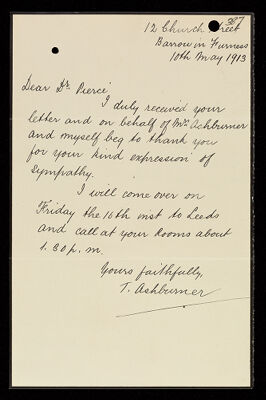 387
12 Church Street
Barrow in Furness
10th May 1913
Dear Dr. Pierce
I duly received your
letter and on behalf of Mrs Ashburner
and myself beg to thank you
for your kind expression of
Sympathy.
I will come over on
Friday the 16th inst to Leeds
and call at your Rooms about
1.30 p.m.
Yours faithfully,
T. Ashburner